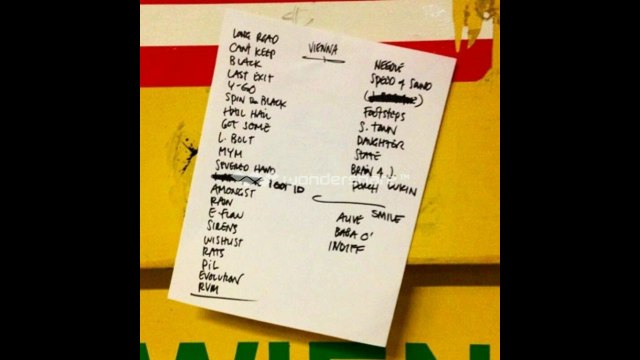 VIENNA
LONG ROAD
CAN'T KEEP
BLACK
LAST EXIT
U-GO
SPIN THE BLACK
HAIL HAIL
GOT SOME
L. BOLT
MYM
SEVERED HAND
1 OOT 1D
AMONGST
RAIN
E. FLOW
SIRENS
WISHLIST
RATS
PIL
EVOLUTION
RVM
NEEDLE
SPEED of SOUND
FOOTSTEPS
S. TOWN
DAUGHTER
STATE
BRAIN of J.
PORCH LUKIN
SMILE
ALIVE
BABA O'
INDIFF
wondershare™
WIEN